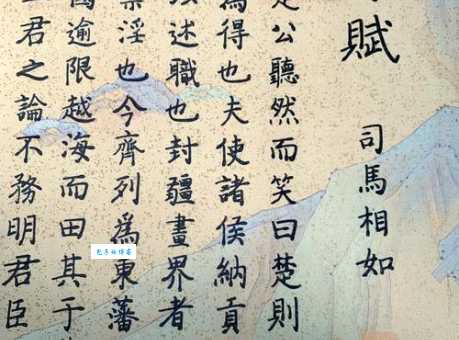 賦
司馬相如
是公聽然而笑曰楚則
為得也夫使諸侯納貢
述職也封疆畫界者
禁淫也今齊列為東藩
國逾限越海而田其于
君之論不務明君臣